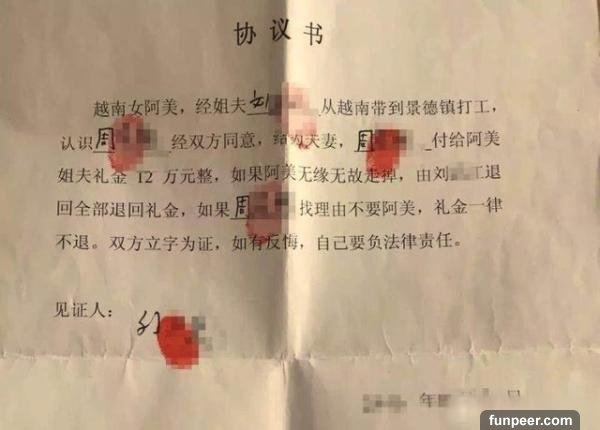 协议书
越南女阿美，经姐夫刘 从越南带到景德镇打工，
认识周 经双方同意，结为夫妻，周 付给阿美
姐夫礼金 12 万元整，如果阿美无缘无故走掉，由刘 工退
回全部退回礼金，如果周 找理由不要阿美，礼金一律
不退。双方立字为证，如有反悔，自己要负法律责任。
见证人：
年
funpeer.com